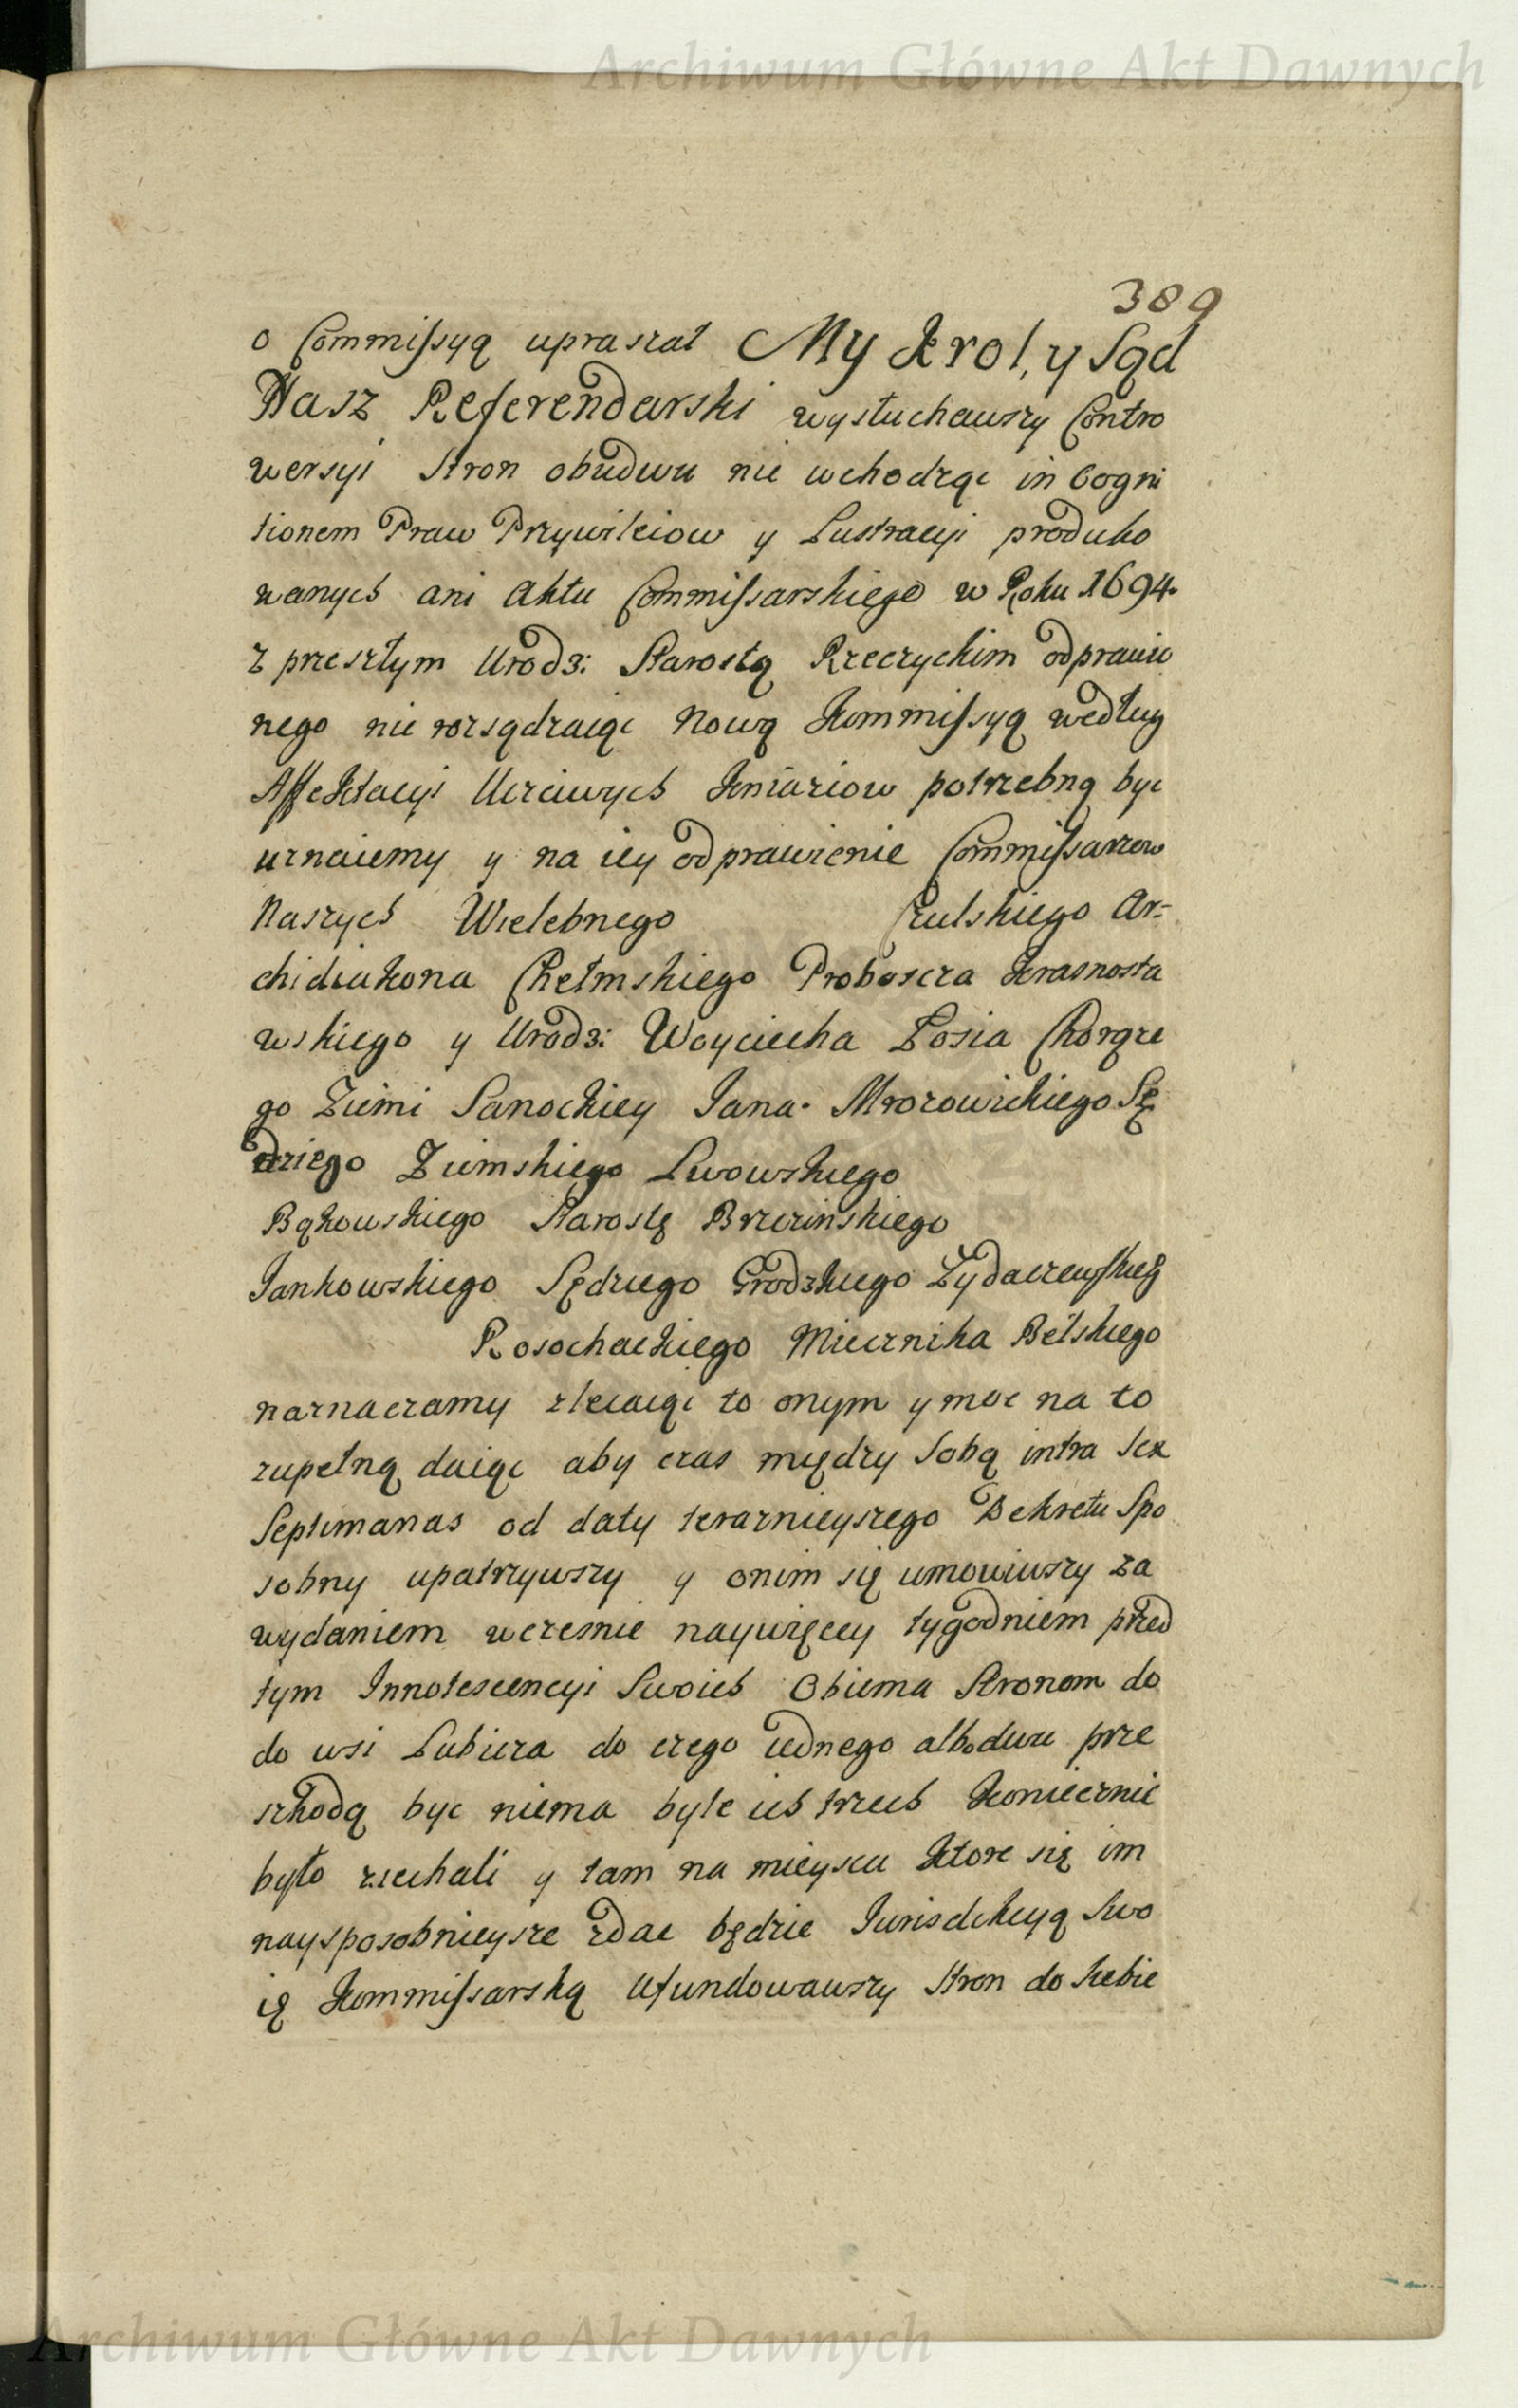 Archiwum Główne Akt Dawnych
389
o Commissyą upraszał My Krol, y Sąd
Nasz Referendarski wysłuchawszy Contro
wersyi Stron obudwu nie wchodząc in Cogni
tionem Praw Przywileiow y Lustracyi produko
wanych ani Aktu Commissarskiego w Roku 1694.
z przeszłym Urodz: Starostą Rzeczyckim odprawio
nego nie rozsądzaiąc Nową Kommissyą według
Affektacyi Uczciwych Kniaziow potrzebną byc
uznaiemy y na iey odprawienie Commissarzow
Naszych Wielebnego Czulskiego Ar=
chidiakona Chełmskiego Proboscza Krasnosta
wskiego y Urodz: Woyciecha Łosia Chorąże
go Ziemi Sanockiey Jana Mrozowickiego Sę
dziego Ziemskiego Lwowskiego
Bąkowskiego Starostę Brzezinskiego
Jankowskiego Sędziego Grodzkiego Żydaczewskieg
Rosochackiego Miecznika Bełskiego
naznaczamy zlecaiąc to onym y moc na to
zupełną daiąc aby czas między Sobą intra sex
Septimanas od daty teraznieyszego Dekretu Spo
sobny upatrzywszy y onim się umowiwszy za
wydaniem wczesnie naywięcey tygodniem przed
tym Innotescencyi Swoich Obiema Stronom do
do wsi Łubicza do czego iednego albo dwu prze
szkodą byc niema byle ich trzech Koniecznie
było ziechali y tam na mieyscu Ktore się im
naysposobnieysze zdac będzie Jurisdikcyą Swo
ią Kommissarską Ufundowawszy Stron do Siebie
Archiwum Główne Akt Dawnych